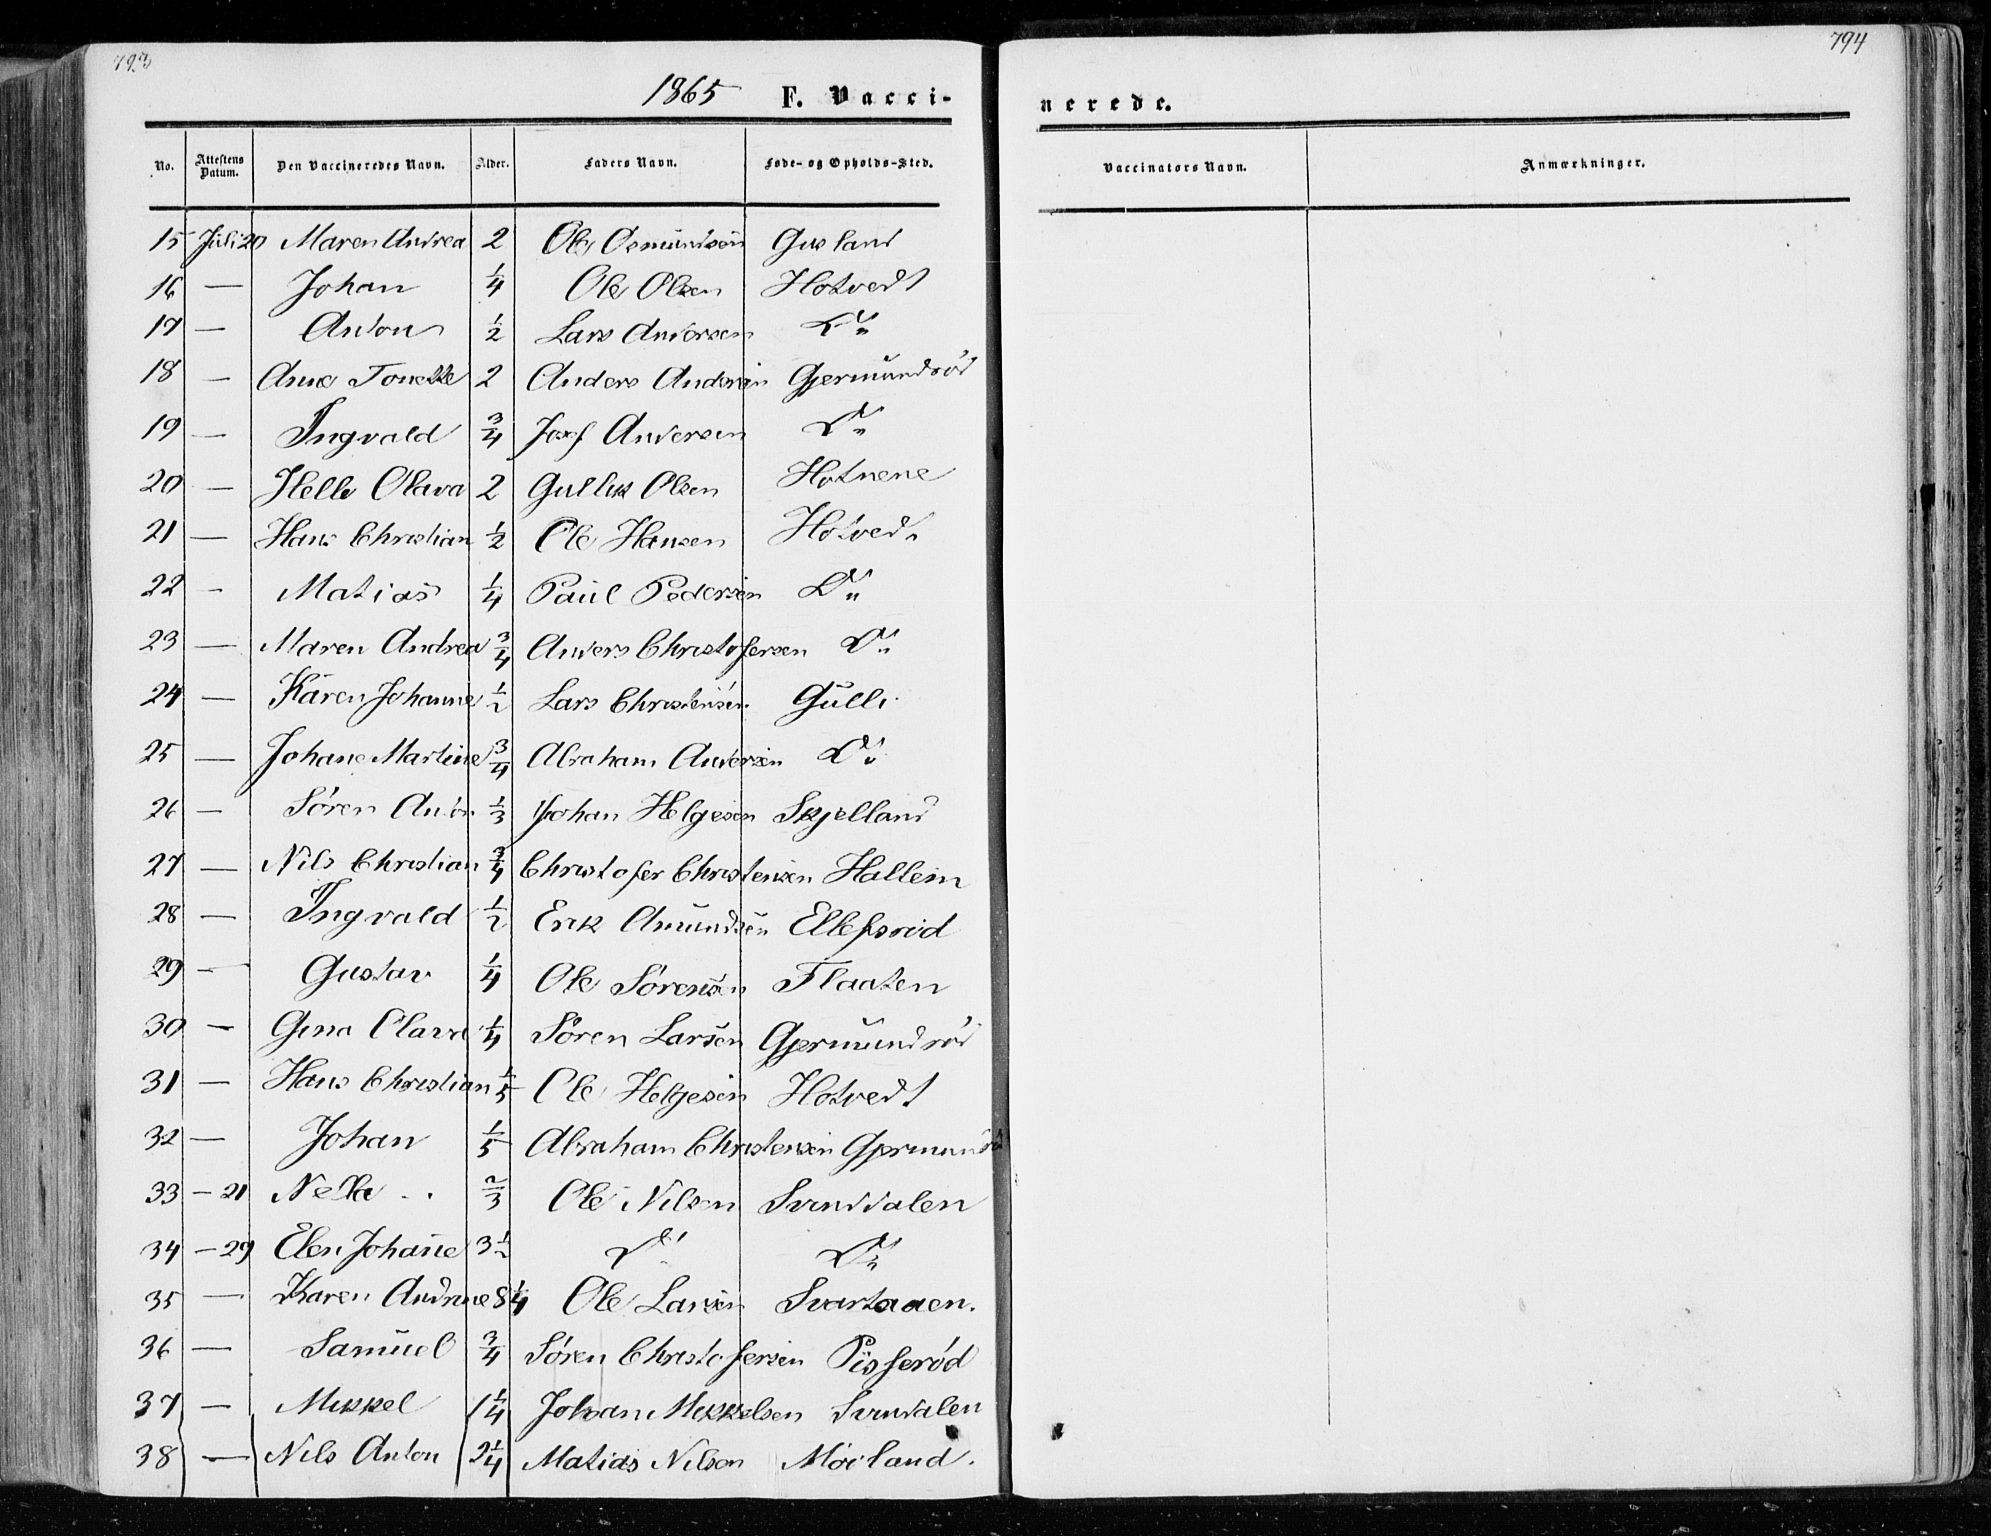 793
794
1865 F. Vacci-
nerede.
No. Attestens Datum. Den Vaccineredes Navn. Alder. Faders Navn. Føde- og Opholds-Sted.
Vaccinators Navn. Anmærkninger.
15 Juli 20 Maren Andrea 2 Ole Osmundsen Gusland
16 — Johan 1/4 Ole Olsen Hotvedt
17 — Anton 1/2 Lars Andersen Do
18 — Anne Tonette 2 Anders Andersen Gjermundröd
19 — Ingvald 3/4 Josef Andersen Do
20 — Helle Olava 2 Gullik Olsen Hotnene
21 — Hans Christian 1/2 Ole Hansen Hotvedt
22 — Matias 1/4 Paul Pedersen Do
23 — Maren Andrea 3/4 Anders Christofersen Do
24 — Karen Johanne 1/2 Lars Christensen Gulli
25 — Johane Martine 3/4 Abraham Andersen Do
26 — Sören Anton 1/3 Johan Helgesen Skjelland
27 — Nils Christian 3/4 Christofer Christensen Hallem
28 — Ingvald 1/2 Erik Amundsen Ellefsröd
29 — Gustav 1/4 Ole Sörensen Flaaten
30 — Gina Olava 1/4 Sören Larsen Gjermundröd
31 — Hans Christian 1/5 Ole Helgesen Hotvedt
32 — Johan 1/5 Abraham Christensen Gjermundröd
33 — 21 Nella 2/3 Ole Nilsen Svinddalen
34 — 29 Elen Johanne 3 1/2 Do Do
35 — Karen Andrine 8 1/4 Ole Larsen Svartaaen.
36 — Samuel 3/4 Sören Christofersen Pisseröd
37 — Mikkel 1 1/4 Johan Mikkelsen Svindalen
38 — Nils Anton 2 1/4 Matias Nilsen Möiland.